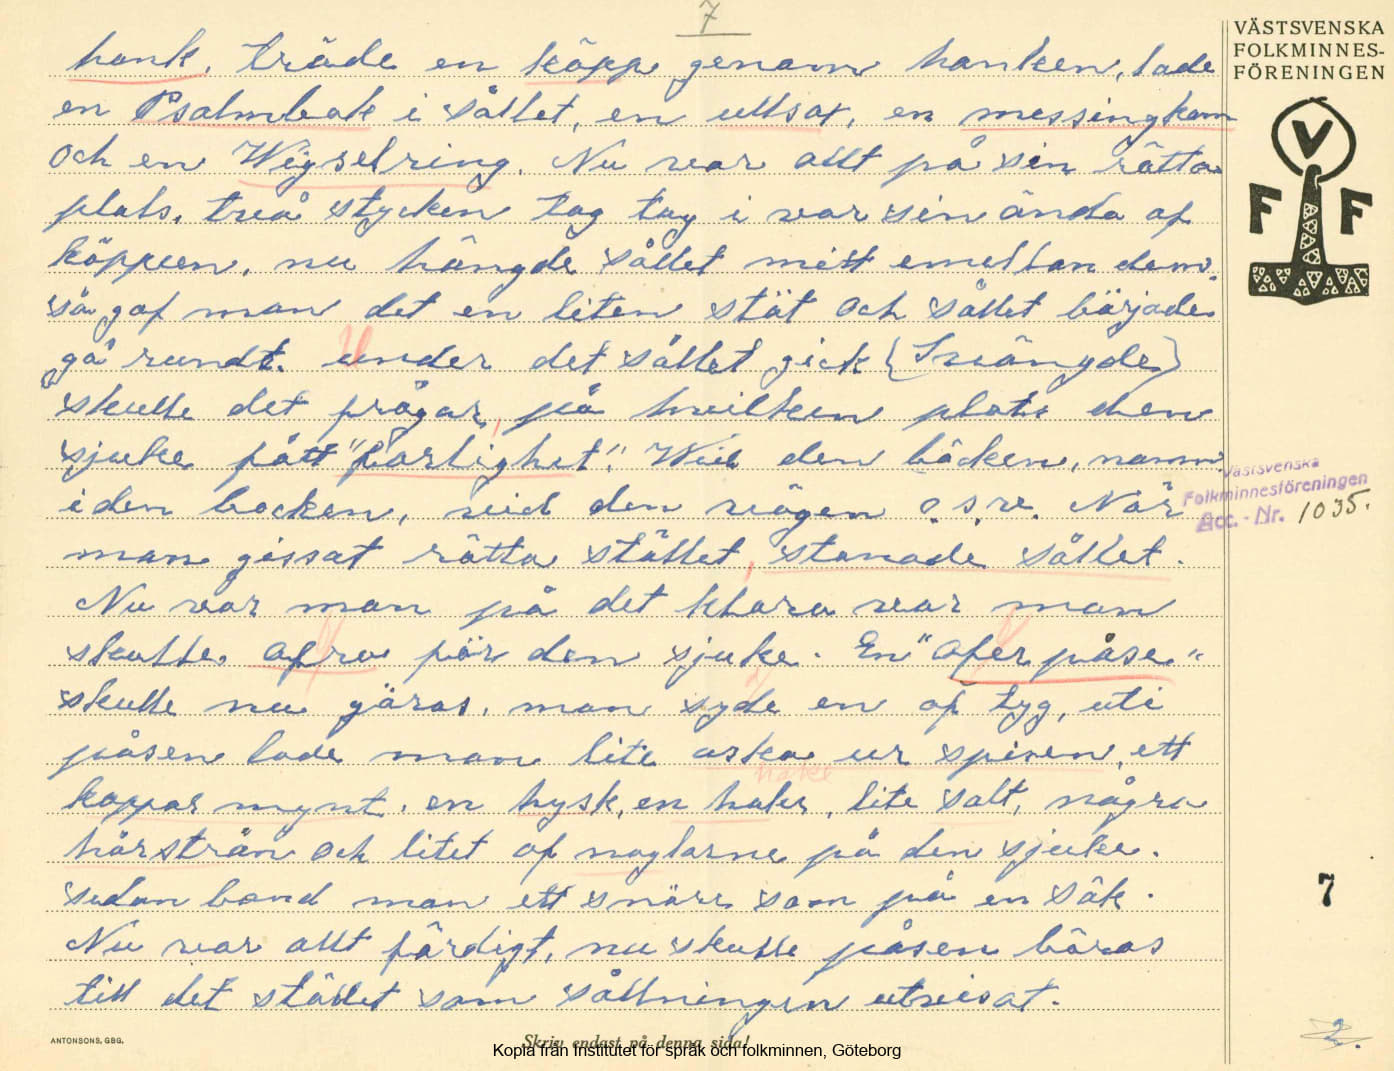 7
VÄSTSVENSKA
FOLKMINNES-
FÖRENINGEN
V
F F
hank, träde en käpp genom hanken, lade
en Psalmbok i sållet, en ullsax, en messingkam
och en Wigselring. Nu var allt på sin rätta
plats, två stycken tog tag i var sin ända af
käppen, nu hängde sållet mitt emellan dem,
så gaf man det en liten stöt och sållet började
gå rundt. under det sållet gick (Svängde)
skulle det frågar, på hvilken plats den
sjuke fått "farlighet". Wid den bäcken, namn
iden backen, vid den vägen o.s.v. När
man gissat rätta stället, stanade sållet.
Nu var man på det klara var man
skulle ofra för den sjuke. En "ofer påse"
skulle nu göras, man syde en af tyg, uti
påsen lade man lite aska ur spisen, ett
hake
koppar mynt, en hysk, en hake, lite salt, några
hårstrån och litet af naglarne på den sjuke.
sedan band man ett snöre som på en säk.
Nu var allt färdigt, nu skulle påsen bäras
till det stället som sållningen utvisat.
Västsvenska
Folkminnesföreningen
Acc. - Nr. 1035.
7
ANTONSONS, GBG.
Skriv endast på denna sida!
Kopia från Institutet för språk och folkminnen, Göteborg